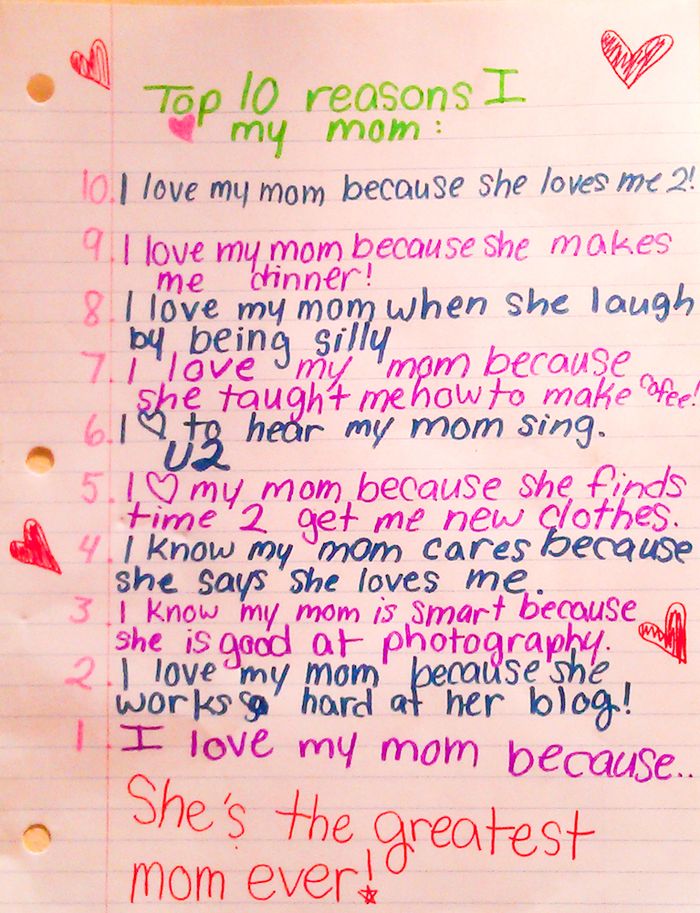 Top 10 reasons I
♥ my mom:
10. I love my mom because she loves me 2!
9. I love my mom because she makes
me dinner!
8. I love my mom when she laugh
by being silly
7. I love my mom because
she taught me how to make cofee!
6. I ♡ to hear my mom sing.
U2
5. I ♡ my mom because she finds
time 2 get me new clothes.
4. I know my mom cares because
she says she loves me.
3. I know my mom is smart because
she is good at photography.
2. I love my mom because she
works so hard at her blog!
1. I love my mom because..
She's the greatest
mom ever!